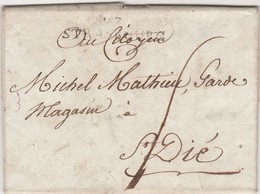 Au Citoyen
Michel Mathieu, Garde
Magasin à
St Dié